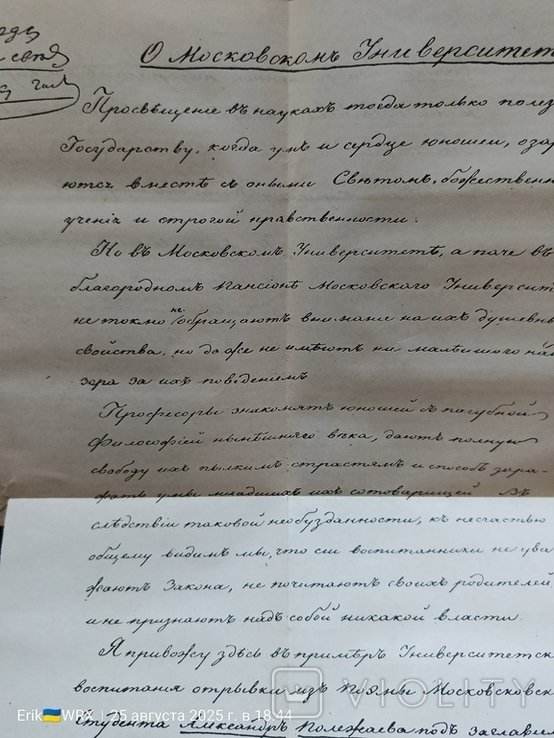 О Московскомъ Университет
Просвѣщеніе въ наукахъ тогда только полез
Государству, когда умъ и сердце юношей, озар
яются вмѣстѣ съ оными Свѣтомъ, божествен
ученія и строгой нравственности.
Но въ Московскомъ Университетѣ, а паче въ
благородномъ Пансіонѣ Московскаго Университ
не токмо не обращаютъ вниманія на ихъ душевн
свойства, но даже не имѣютъ ни малѣйшаго над
зора за ихъ поведеніемъ
Професоры знакомятъ юношей съ пагубной
философіей нынѣшняго вѣка, даютъ полную
свободу ихъ пылкимъ страстямъ и способъ зара-
жать умы младшихъ ихъ сотоварищей Въ
слѣдствіи таковой необузданности, къ несчастью
общему видимъ мы, что сіи воспитанники не ува
жаютъ Закона, не почитаютъ своихъ родителей
и не признаютъ надъ собой никакой власти.
Я привожу здѣсь въ примѣръ Университетск
воспитанія отрывки изъ поэмы Московск
студента Александръ Полежаева подъ заглавіе
VIOLITY
Erik🇺🇦WRX | 25 августа 2025 г. в 18:44